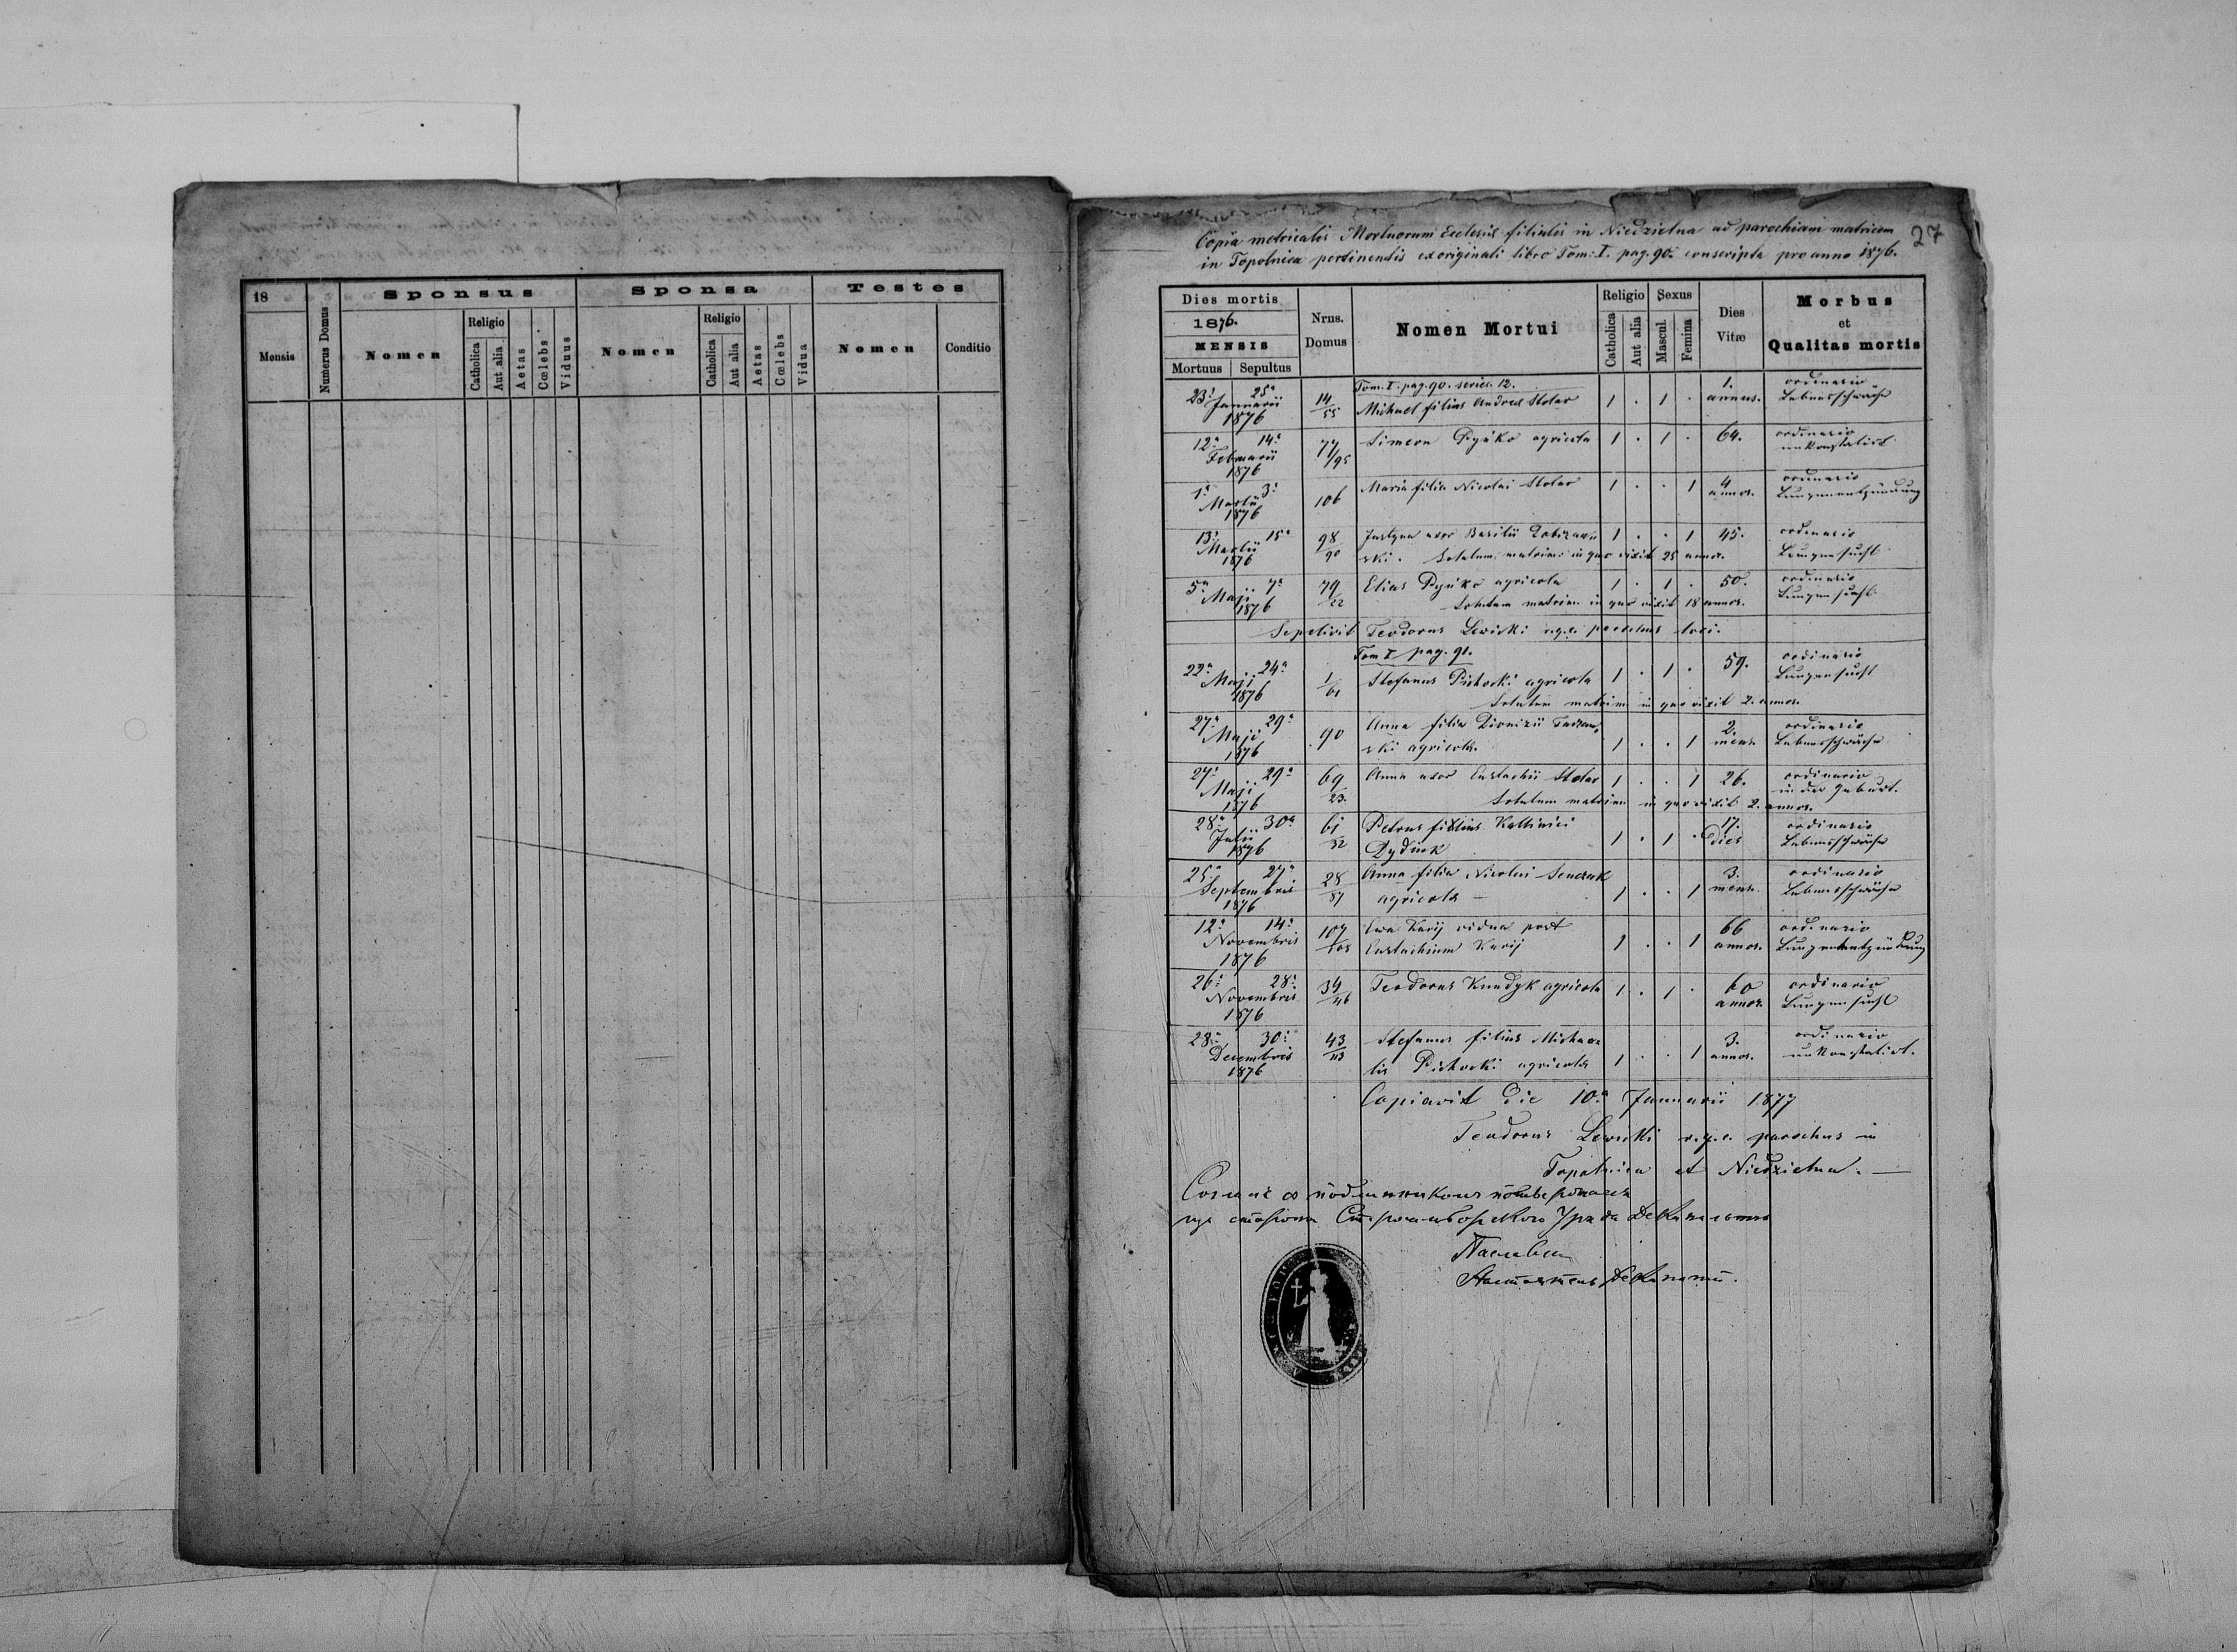 18
Sponsus
Sponsa
Testes
Mensis
Numerus Domus
Nomen
Religio
Catholica
Aut alia
Aetas
Cœlebs
Viduus
Nomen
Religio
Catholica
Aut alia
Aetas
Cœlebs
Vidua
Nomen
Conditio
Copia metricalis Mortuorum Ecclesiæ filialis in Niedzielna ad parochiam matricem 27
in Topolnica pertinentis ex originali libro Tom: I. pag. 90. conscripta pro anno 1876.
Dies mortis
1876.
MENSIS
Mortuus Sepultus
Nrus. Domus
Nomen Mortui
Religio
Catholica
Aut alia
Sexus
Mascul.
Femina
Dies Vitæ
Morbus
et
Qualitas mortis
Tom. I. pag. 90. series. 12.
23. 25a 14/55 Michael filius Andreæ Stolar 1 . 1 . 1. annus. ordinario
Januarii Lebensschwäche
1876
12a 14a 77/95 Simeon Dyńko agricola 1 . 1 . 64. ordinario
Februarii unkonstatirt
1876
1. 3. 106 Maria filia Nicolai Stolar 1 . . 1 4 annor. ordinario
Martii Lungenentzündung
1876
13. 15a 98/90 Justyna uxor Basilii 1 . . 1 45. ordinario
Martii ski. Solutum matrim: in quo vixit 25 annor. Lungensucht
1876
5a 7a 79/22 Elias Dyńko agricola 1 . 1 . 50. ordinario
Maji Solutum matrim. in quo vixit 18 annor. Lungensucht
1876
Sepelivit Teodorus Lewicki r.g.c. parochus loci.
Tom I pag. 91.
22a 24a 1/61 Stefanus Pichocki agricola 1 . 1 . 59. ordinario
Maji Lungensucht
1876 Solutum matrim in quo vixit 2. annor.
27a 29a 90 Anna filia Dionizii
Maji ski agricola. 1 . . 1 2. mens. ordinario Lebensschwäche
1876
27a 29a 69/23. Anna uxor Eustachii Stolar 1 . . 1 26. ordinario
Maji Solutum matrim in quo vixit 2. annor. in der Geburt.
1876
28a 30a 61/32 Petrus filius Kallinici
Julii Dydiuk 1 . 1 . 17. dies ordinario Lebensschwäche
1876
25a 27a 28/87 Anna filia Nicolai Senczak
Septembris agricola 1 . . 1 3. mens. ordinario Lebensschwäche
1876
12. 14. 107/105 Ewa Karij vidua post
Novembris Eustachium Karij 1 . . 1 66 annor. ordinario Lungenentzündung
1876
26. 28. 34/46 Teodorus Kundyk agricola 1 . 1 . 60 annor. ordinario
Novembris Lungensucht
1876
28. 30. 43/113 Stefanus filius Michae-
Decembris lis Pichocki agricola 1 . . 1 3. annor. ordinario unkonstatirt.
1876
Copiavit die 10a Januarii 1877
Teodorus Lewicki r.g.c. parochus in
Topolnica et Niedzielna.